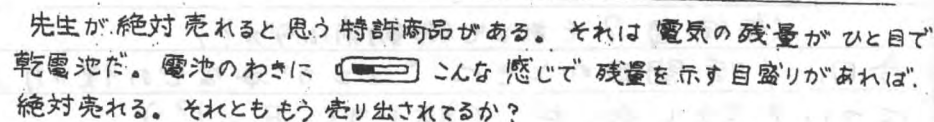 先生が絶対売れると思う特許商品がある。それは電気の残量がひと目で
乾電池だ。電池のわきに こんな感じで残量を示す目盛りがあれば、
絶対売れる。それとももう売り出されてるか？